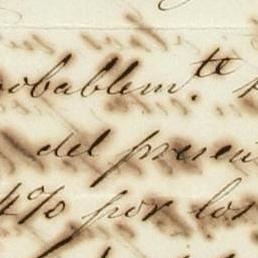 obablem.te
del presen
4% por los